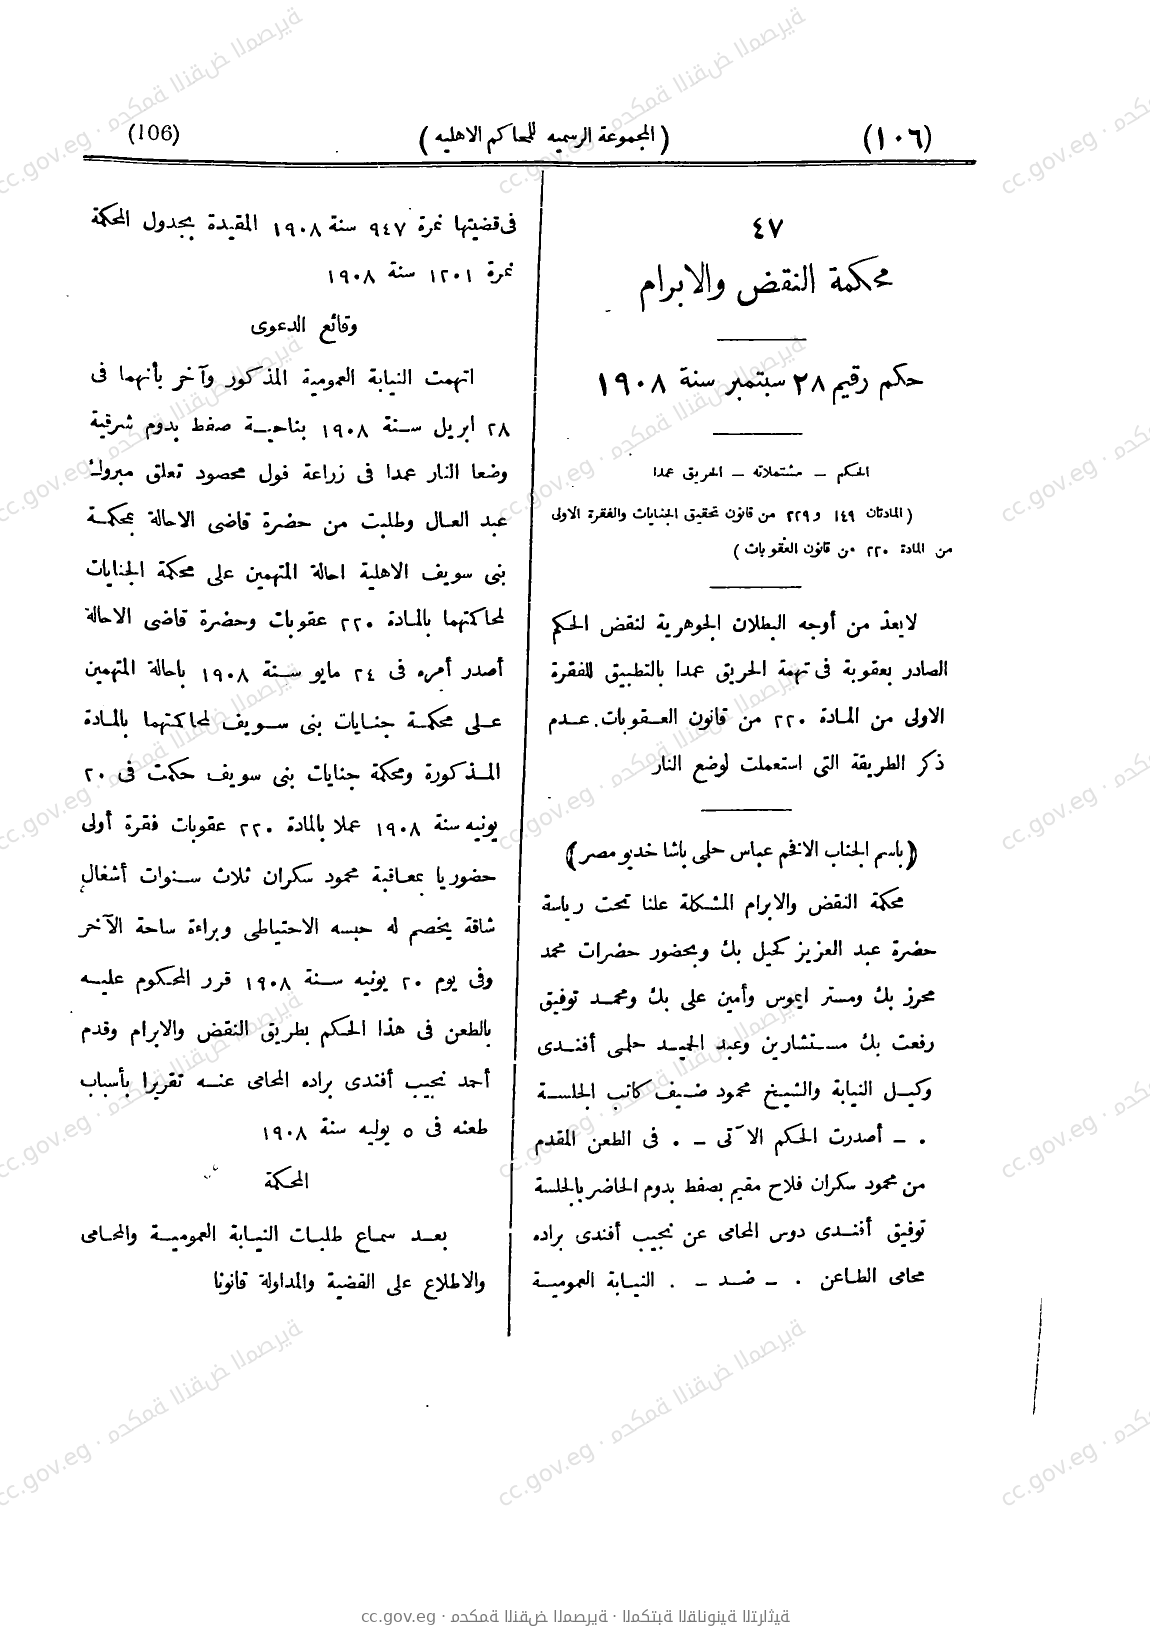 (١٠٦)
( المجموعة الرسميه للمحاكم الاهليه )
(106)
٤٧
محكمة النقض والابرام
حكم رقيم ٢٨ سبتمبر سنة ١٩٠٨
الحكم – مشتملاته – الحريق عمدا
( المادتان ١٤٩ و ٢٢٩ من قانون تحقيق الجنايات والفقرة الاولى
من المادة ٢٢٠ من قانون العقوبات )
لايعدّ من أوجه البطلان الجوهرية لنقض الحكم
الصادر بعقوبة فى تهمة الحريق عمدا بالتطبيق للفقرة
الاولى من المادة ٢٢٠ من قانون العقوبات. عدم
ذكر الطريقة التى استعملت لوضع النار
(باسم الجناب الانخم عباس حلمى باشا خديو مصر)
محكمة النقض والابرام المشكلة علنا تحت رياسة
حضرة عبد العزيز كحيل بك وبحضور حضرات محمد
محرز بك ومستر ايموس وأمين على بك ومحمد توفيق
رفعت بك مستشارين وعبد الحميد حلمى أفندى
وكيل النيابة والشيخ محمود ضيف كاتب الجلسة
. – أصدرت الحكم الآتى – . فى الطعن المقدم
من محمود سكران فلاح مقيم بصفط بدوم الحاضر بالجلسة
توفيق أفندى دوس المحامى عن نجيب أفندى براده
محامى الطاعن . – ضد – . النيابة العمومية
فى قضيتها نمرة ٩٤٧ سنة ١٩٠٨ المقيدة بجدول المحكمة
نمرة ١٢٠١ سنة ١٩٠٨
وقائع الدعوى
اتهمت النيابة العمومية المذكور وآخر بأنهما فى
٢٨ ابريل سنة ١٩٠٨ بناحية صفط بدوم شرقية
وضعا النار عمدا فى زراعة فول محصود تعلق مبروك
عبد العال وطلبت من حضرة قاضى الاحالة بمحكمة
بنى سويف الاهلية احالة المتهمين على محكمة الجنايات
لمحاكمتهما بالمادة ٢٢٠ عقوبات وحضرة قاضى الاحالة
أصدر أمره فى ٢٤ مايو سنة ١٩٠٨ باحالة المتهمين
على محكمة جنايات بنى سويف لمحاكمتهما بالمادة
المذكورة ومحكمة جنايات بنى سويف حكمت فى ٢٠
يونيه سنة ١٩٠٨ عملا بالمادة ٢٢٠ عقوبات فقرة أولى
حضوريا بمعاقبة محمود سكران ثلاث سنوات أشغال
شاقة يخصم له حبسه الاحتياطى وبراءة ساحة الآخر
وفى يوم ٢٠ يونيه سنة ١٩٠٨ قرر المحكوم عليه
بالطعن فى هذا الحكم بطريق النقض والابرام وقدم
أحمد نجيب أفندى براده المحامى عنه تقريرا بأسباب
طعنه فى ٥ يوليه سنة ١٩٠٨
المحكمة
بعد سماع طلبات النيابة العمومية والمحامى
والاطلاع على القضية والمداولة قانونا
cc.gov.eg · محكمة النقض المصرية · المكتبة القانونية التراثية